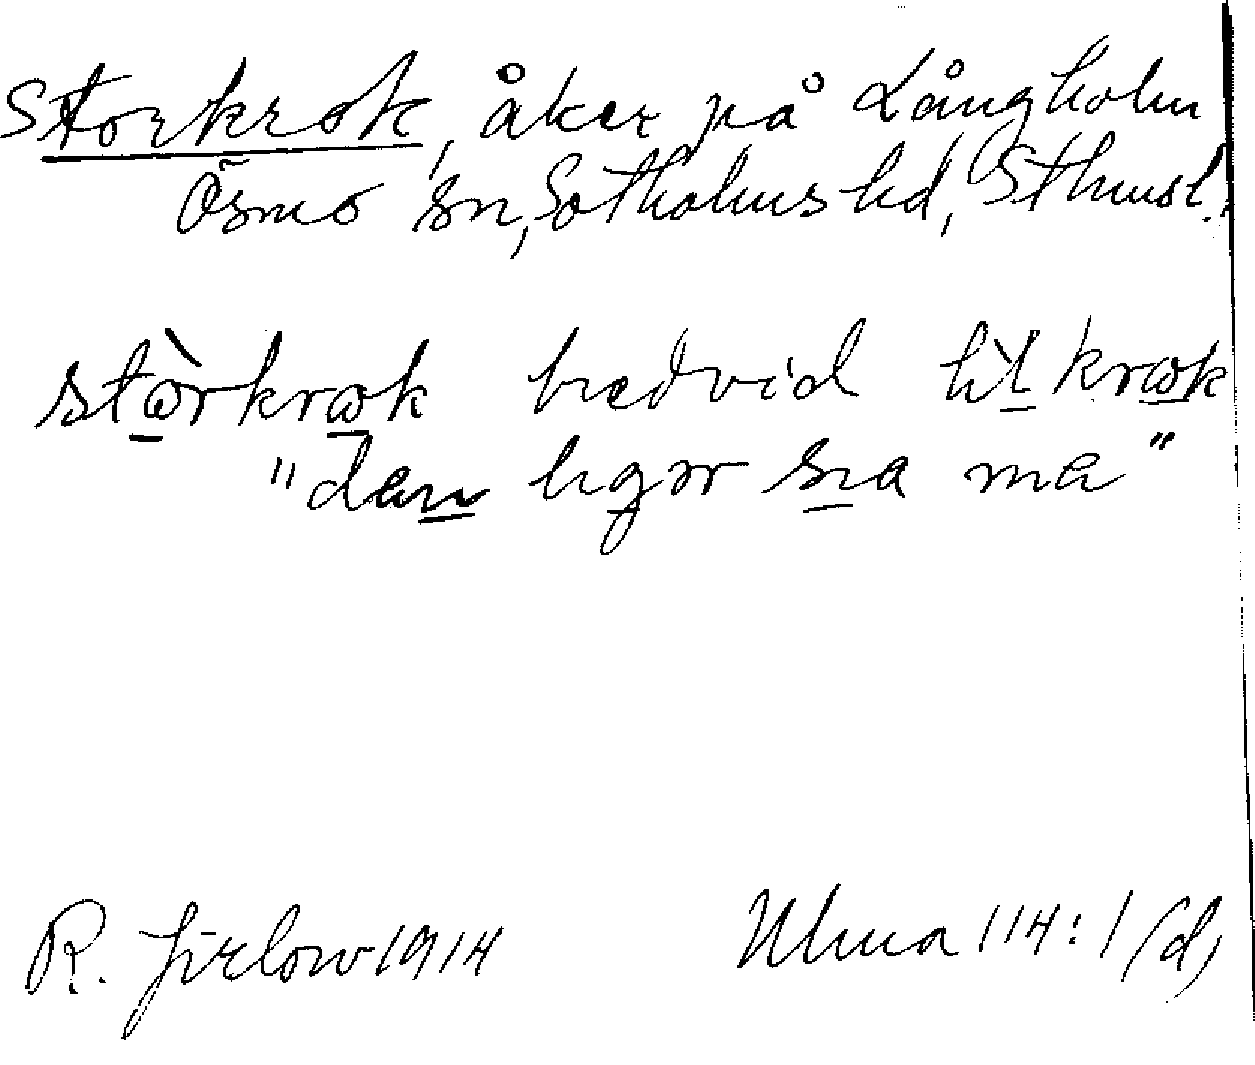 Storkrok, åker på Långholm
Ösmo sn, Sotholms hd, Sthmsl.
stòrkrok bredvid lìlkrok
"dan ligər sia ma"
R. Jirlow 1914 Ulma 114:1(d)